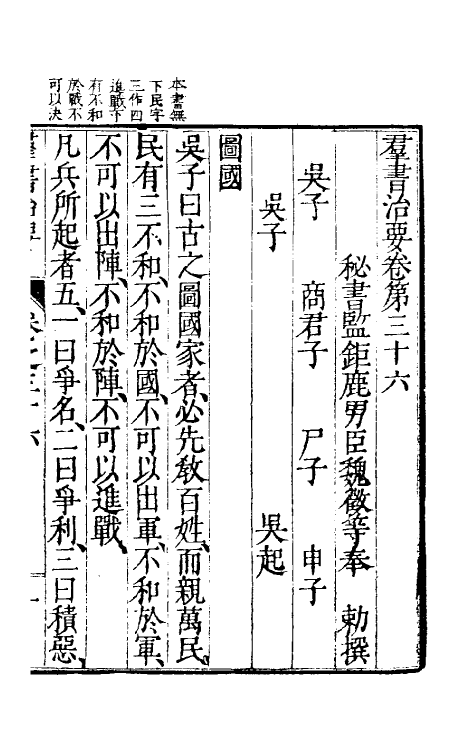 本書無
下民字
三作四
進戰下
有不和
於戰不
可以決
羣書治要卷第三十六
秘書監鉅鹿男臣魏徵等奉 勅撰
吳子 商君子 尸子 申子
吳子 吳起
圖國
吳子曰古之圖國家者、必先敎百姓、而親萬民、
民有三不和、不和於國、不可以出軍、不和於軍、
不可以出陣、不和於陣、不可以進戰、
凡兵所起者五、一曰爭名、二曰爭利、三曰積惡、